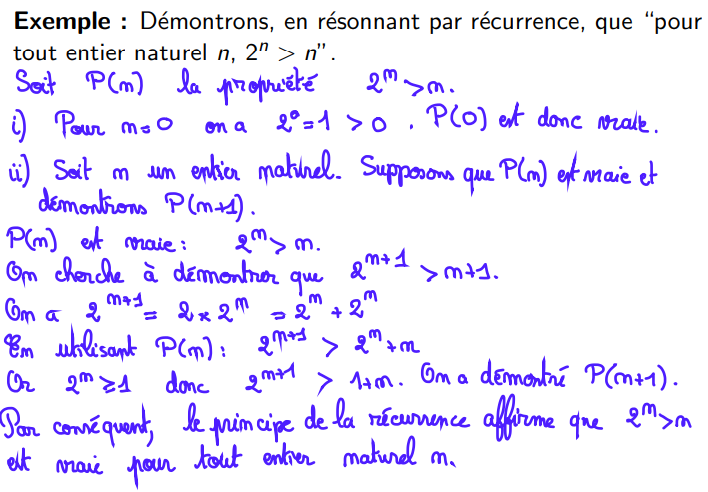 Exemple : Démontrons, en résonnant par récurrence, que “pour
tout entier naturel n, 2ⁿ > n”.
Soit P(n) la propriété 2ⁿ > n.
i) Pour n=0 on a 2⁰ = 1 > 0. P(0) est donc vraie.
ii) Soit n un entier naturel. Supposons que P(n) est vraie et
démontrons P(n+1).
P(n) est vraie : 2ⁿ > n.
On cherche à démontrer que 2ⁿ⁺¹ > n+1.
On a 2ⁿ⁺¹ = 2 × 2ⁿ = 2ⁿ + 2ⁿ
En utilisant P(n) : 2ⁿ⁺¹ > 2ⁿ + n
Or 2ⁿ ≥ 1 donc 2ⁿ⁺¹ > 1+n. On a démontré P(n+1).
Par conséquent, le principe de la récurrence affirme que 2ⁿ > n
est vraie pour tout entier naturel n.